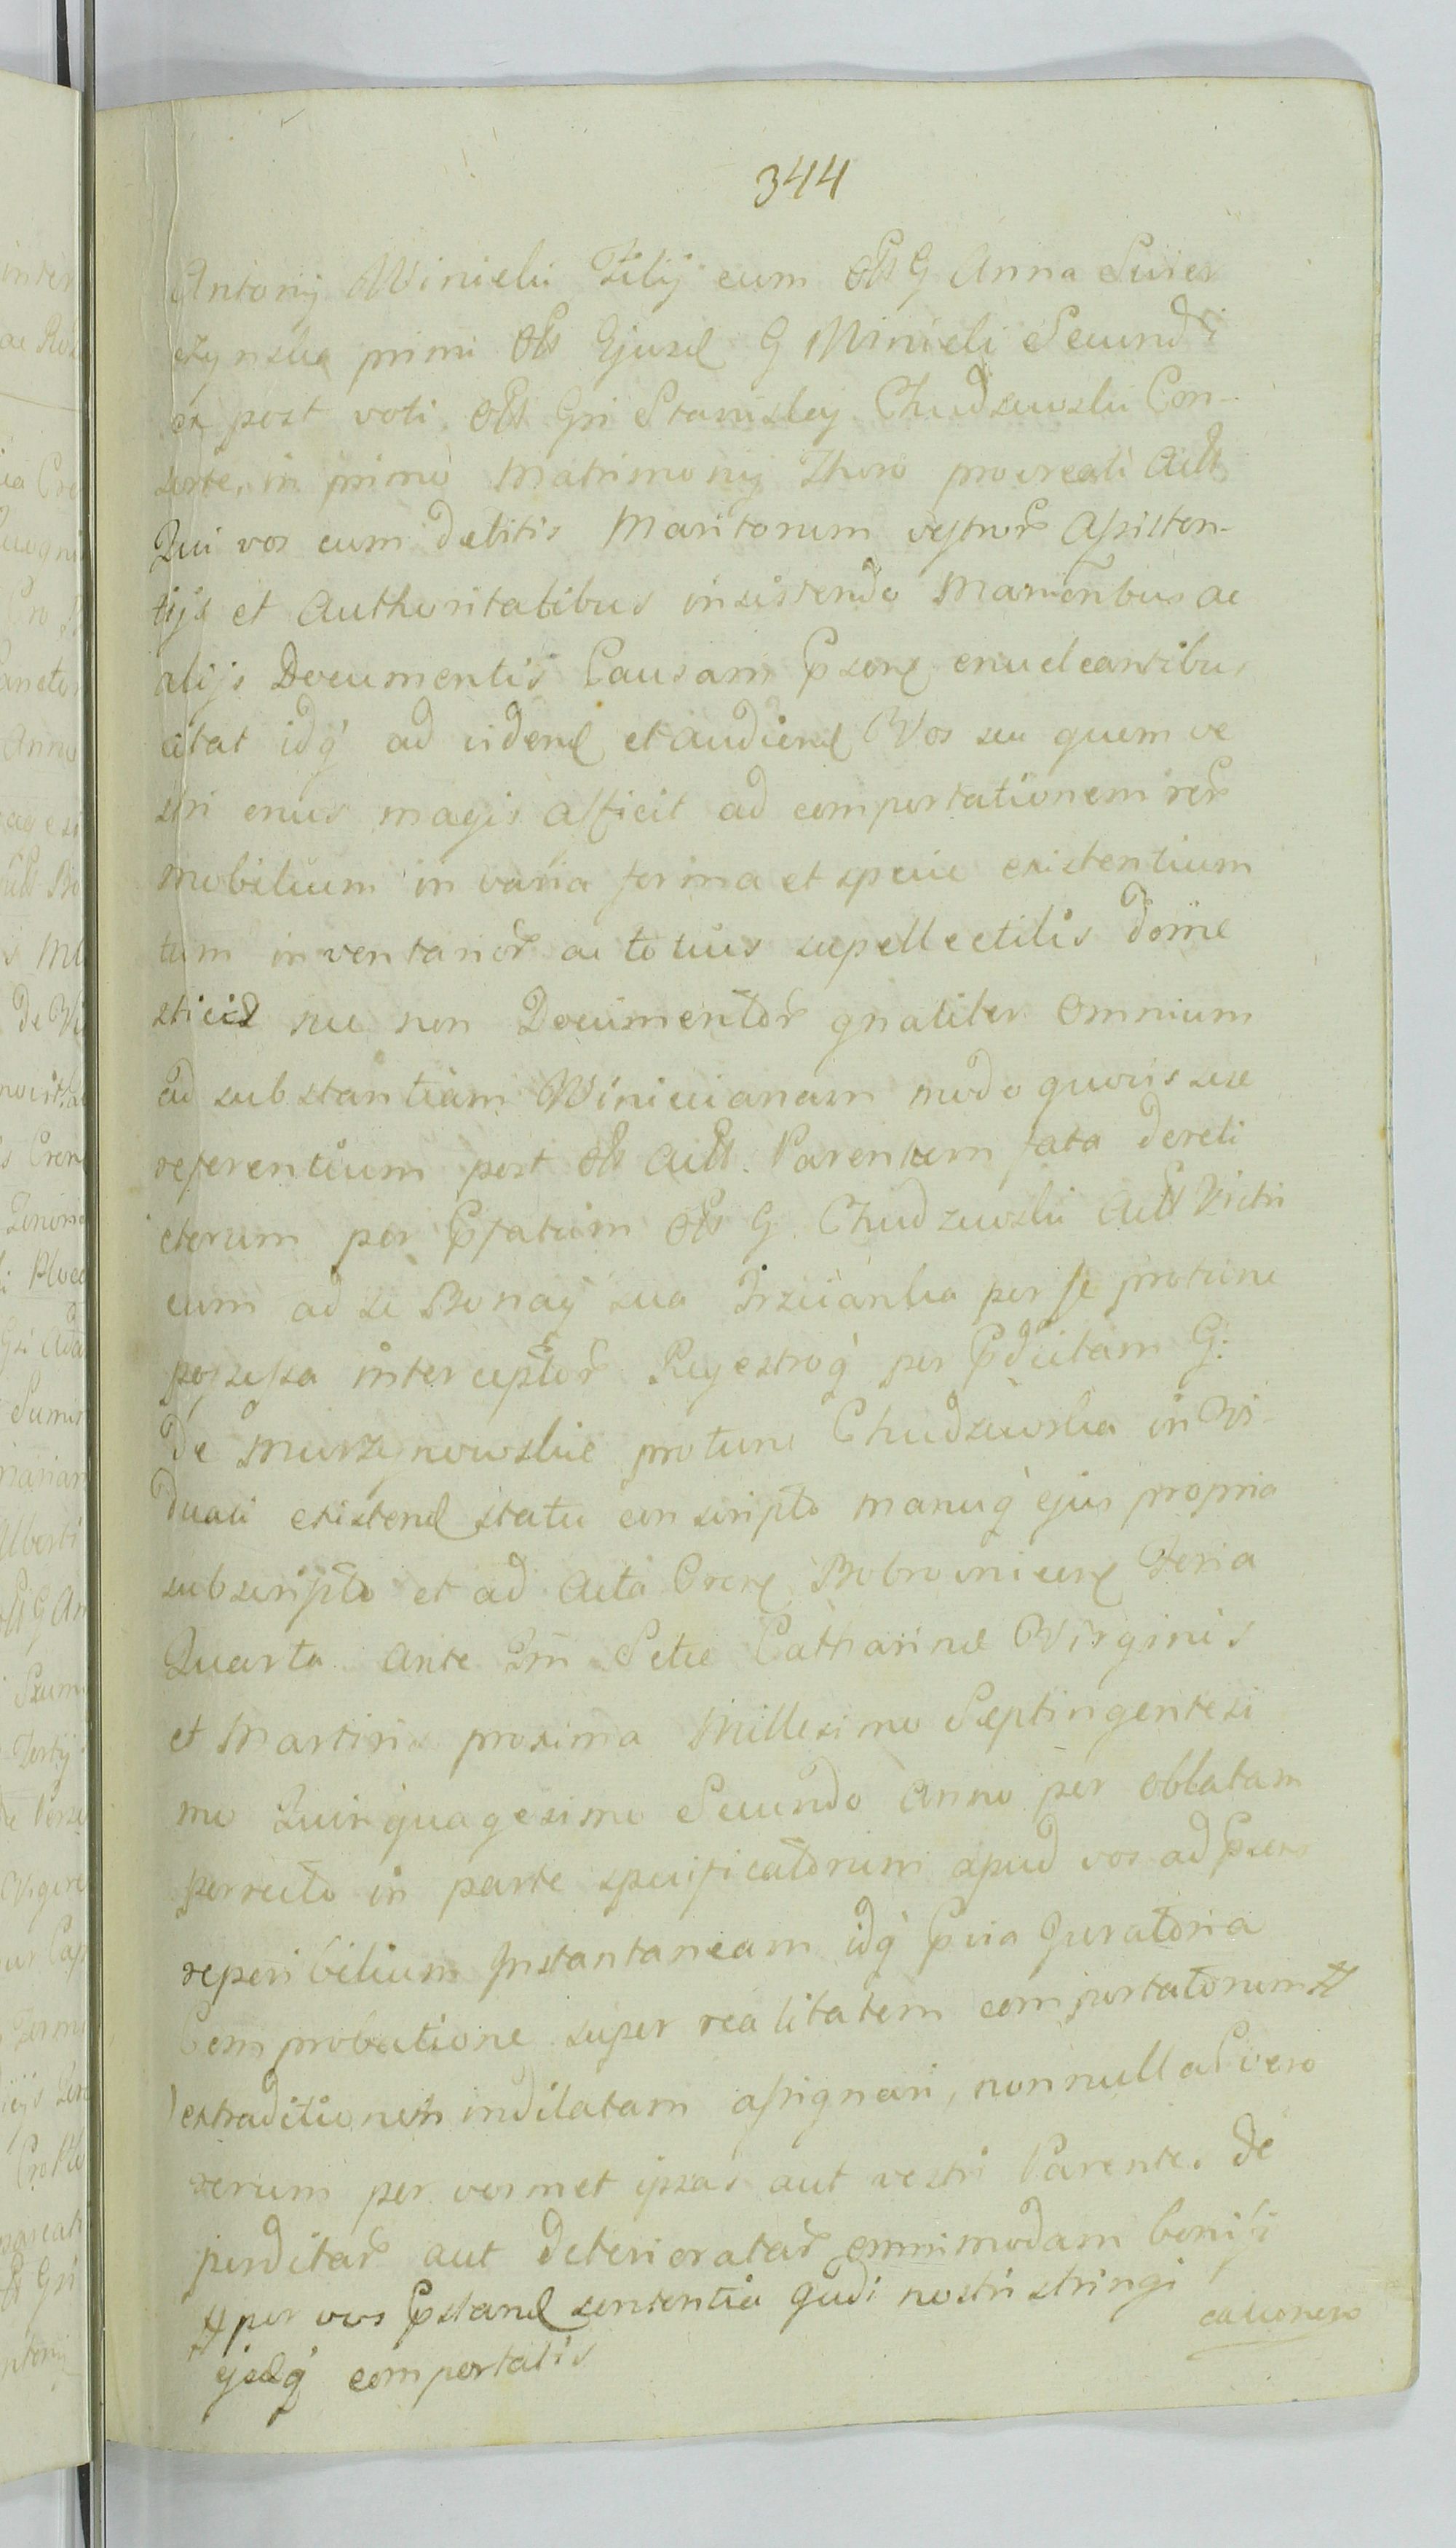 344
Antonij Winicki Filij cum olis G Anna Swier
czynska primi olis Ejusd G Winicki Secundi
ex post voti olis Gsi Stanislaj Chudzewski Con-
sorte, in primo Matrimonij Thoro procreati Actt
Qui vos cum debitis Maritorum vestror Assisten-
tijs et Authoritatibus insistendo Munimentbus ac
alijs Documentis Causam psene enucleantibus
citat idq ad vidend et audiend Vos seu quem ve
stri onus magis afficit ad comportationem rer
mobilium in varia forma et specie existentium
tum inventarior ac totius supellectilis dome
sticae nec non Documentor gnaliter omnium
ad substantiam Winicianam modo quovis sese
referentium post olis Actt. Parentum fata dereli
ctorum per pfatum olis G Chudzewski Actt Victri
cum ad se Bonaq sua Trzcianka per se protunc
possessa interceptor Regestroq per pdictam G:
de Murzynowskie protunc Chudzewska in Vi-
duali existend statu conscripto manuq ejus propria
subscripto et ad Acta Crens Bobrownicens Feria
Quarta Ante Fm Sctae Catharinae Virginis
et Martiris proxima Millesimo Septingentesi
mo Quinquagesimo Secundo Anno per oblatam
porrecto in parte specificatorum apud vos ad psens
reperibilium Instantaneam idq pvia Juratoria
Comprobatione super realitatem comportatorum #
extraditionem indilatam assignari, nonnullas vero
rerum per vosmet ipsas aut vestri Parentes de
perditar aut deterioratar omnimodam bonifi
# per vos pstand sententia Judi nostri stringi
cationem
ejsdq comportatis